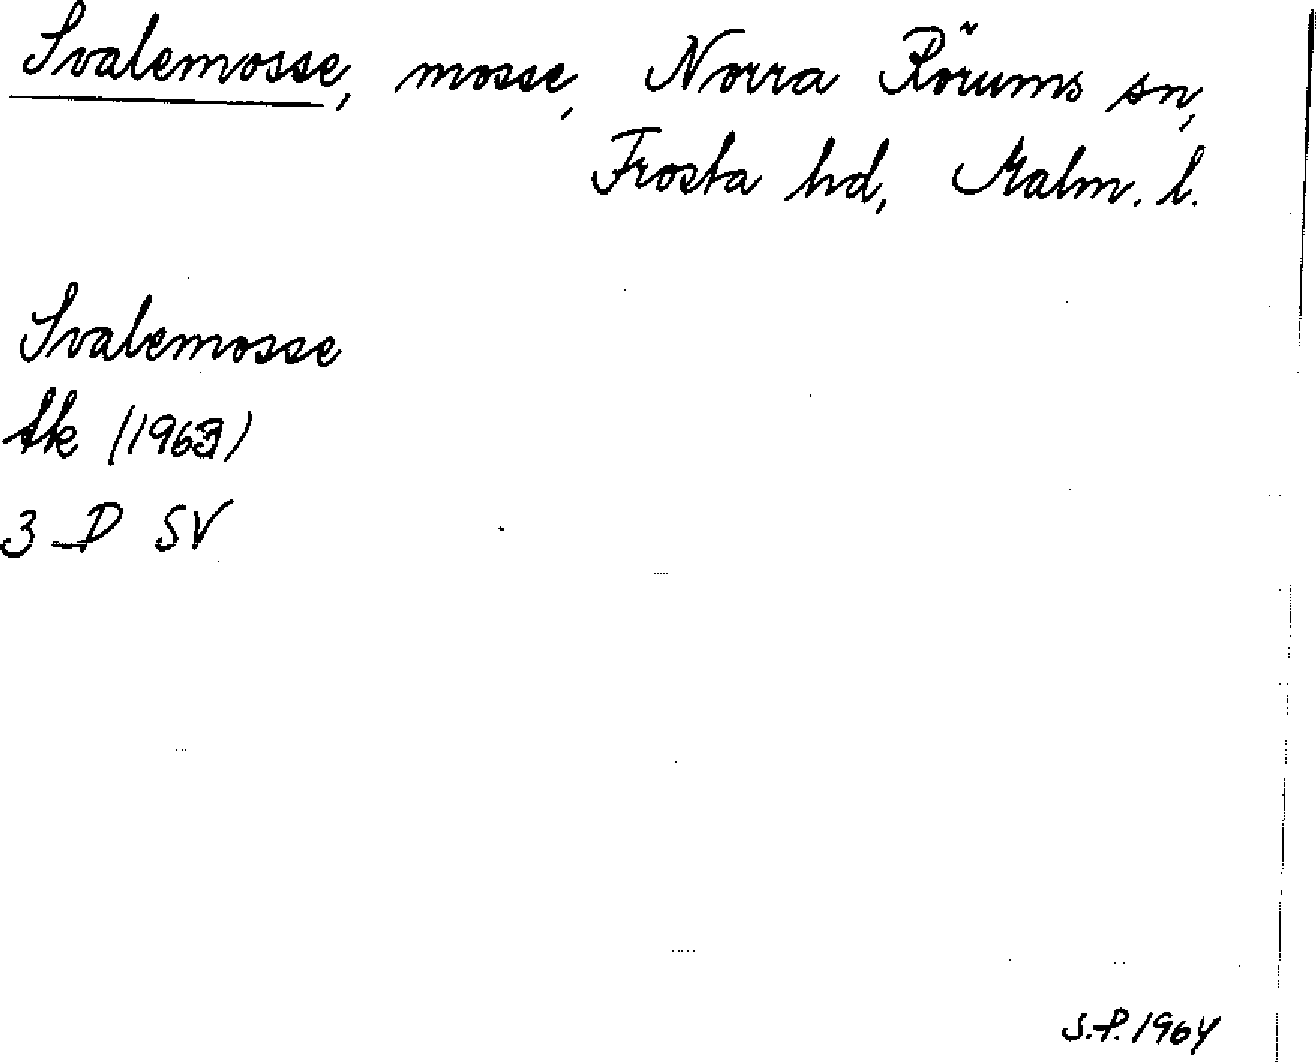 Svalemosse, mosse, Norra Rörums sn,
Frosta hd, Malm. l.
Svalemosse
Ak (1963)
3 D SV
S.P. 1964